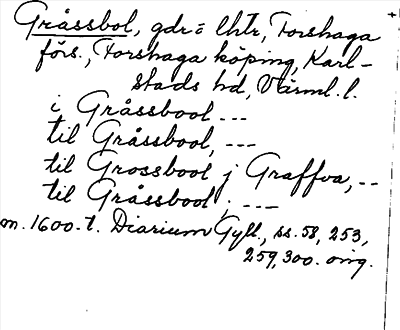 Gråssbol, gdr = lhtr, Forshaga
förs., Forshaga köping, Karl-
stads hd, Värml. l.
i Gråssbool ---
til Gråssbool, ---
til Grossbool j Graffva, --
til Gråssbool, ---
m. 1600-t. Diarium Gyll., ss. 58, 253,
259, 300. omg.